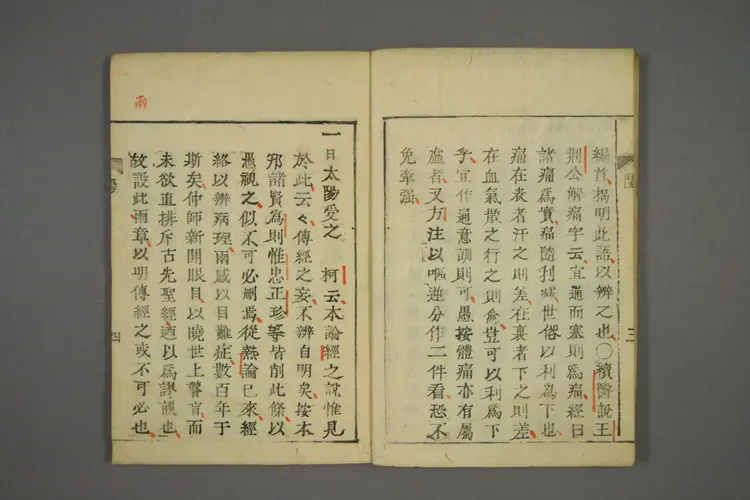 編首揭明此語以辨之也〇續醫說王
荆公解痛字云宜通而塞則爲痛經曰
諸痛爲實痛隨利減世俗以利爲下也
痛在表者汗之則差在裏者下之則差
在血氣散之行之則愈豈可以利爲下
乎宜作通意訓則可愚按體痛亦有屬
虛者又方注以嘔逆分作二件看恐不
免牽强
三
一日太陽受之 柯云本論經之說惟見
於此云々傳經之妄不辨自明矣按本
邪諸賢爲則惟忠正珍等皆削此條以
愚視之似不可必刪焉從熱論已來經
絡以辨病理兩感以目難症數百年于
斯矣仲師新開眼目以曉世上瞽盲而
未欲直排斥古先聖經遒以爲謬誤也
故設此兩章以明傳經之或不可必也
四
兩